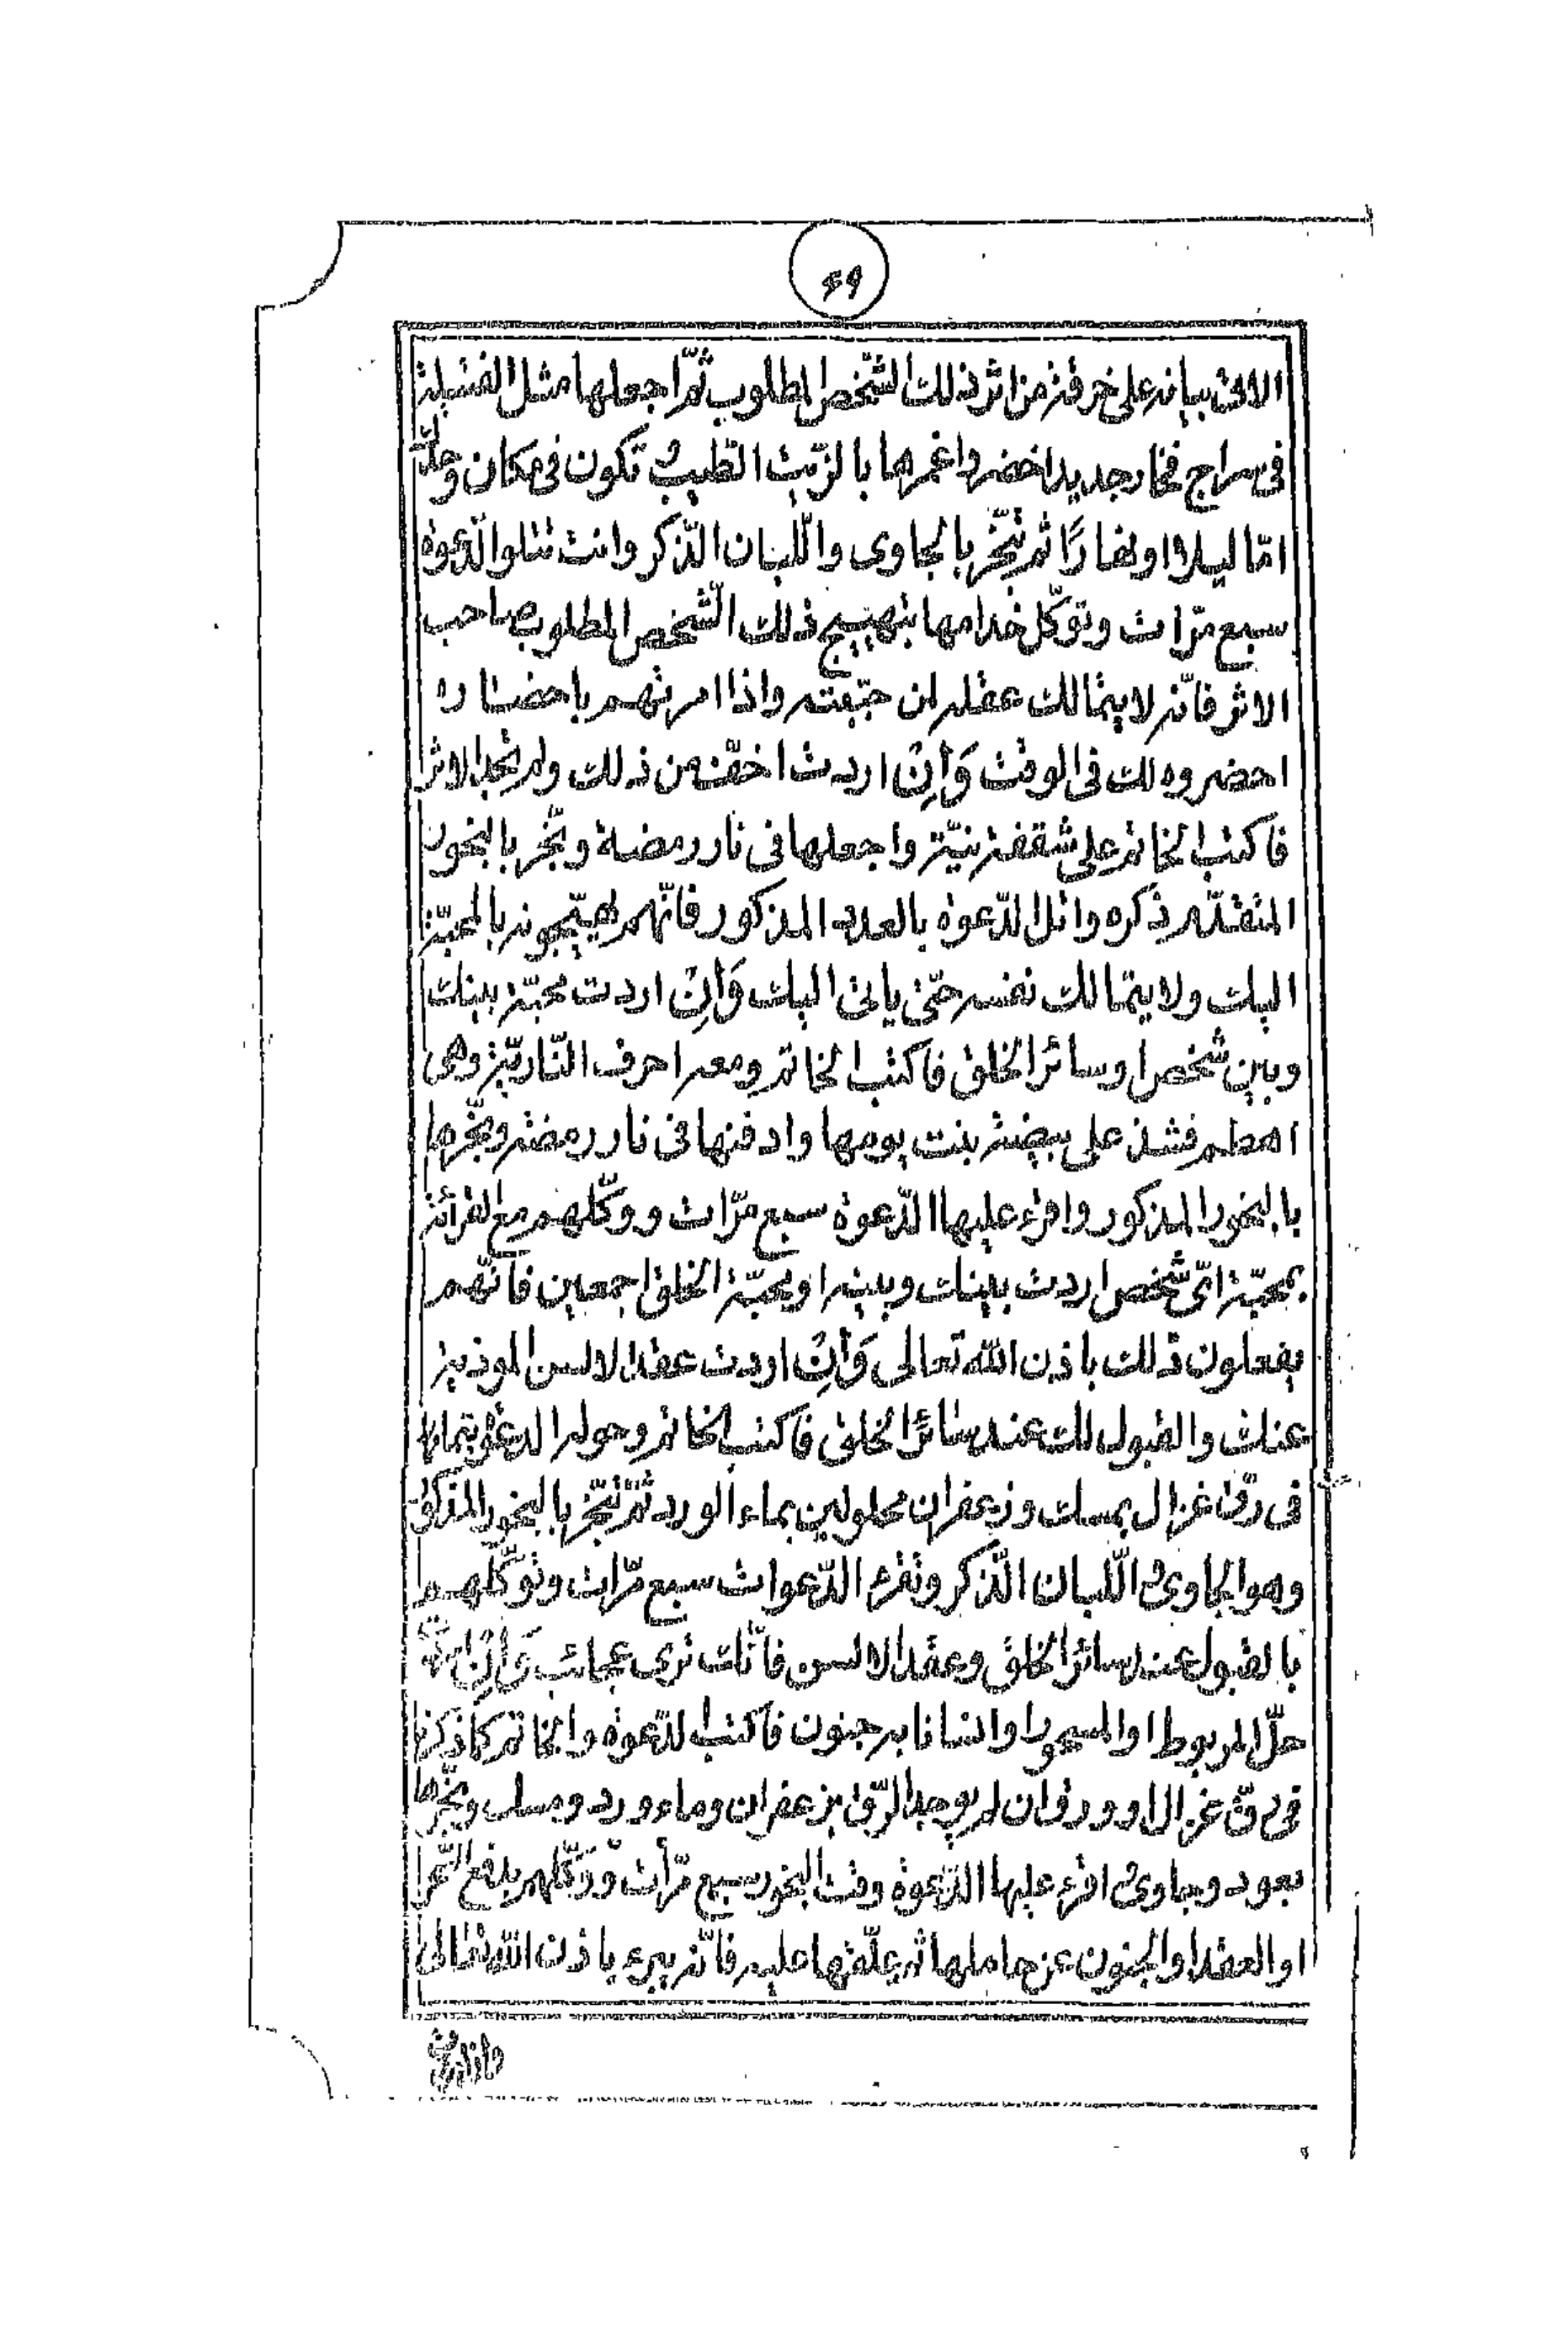 ٤٩
الاتى بيانه على خرقة من اثر ذلك الشّخص المطلوب ثمّ اجعلها مثل الفتيلة
فى سراج فخار جديد اخضر واغمرها بالزّيت الطّيب و تكون فى مكان وحدك
امّا ليلا او نهارًا ثم تبخّر بالجاوى واللّبان الذّكر وانت تتلوا الدّعوة
سبع مرّات وتوكّل خدامها بتهييج ذلك الشّخص المطلوب صاحب
الاثر فانّه لا يتمالك عقله ان حبّيته واذا امرتهم باحضاره
احضروه لك فى الوقت وَاِنْ اردت اخفّ من ذلك ولم تجد الاثر
فاكتب الخاتم على شقفة نيّة واجعلها فى نار رمضة وبخّر بالبخور
المتقدّم ذكره واتل الدّعوة بالعدد المذكور فانّهم يهيّجونه بالمحبّة
اليك ولا يتمالك نفسه حتّى ياتى اليك وَاِنْ اردت محبّة بينك
وبين شخص او سائر الخلق فاكتب الخاتم ومعه احرف النّاريّة وهى
اهطم فشذ على بيضة بنت يومها وادفنها فى نار رمضة وبخّرها
بالبخور المذكور واقرء عليها الدّعوة سبع مرّات ووكّلهم مع القرائة
بمحبّة اىّ شخص اردت بينك وبينه او بمحبّة الخلق اجمعين فانّهم
يفعلون ذلك باذن اللّه تعالى وَاِنْ اردت عقد الالسن الموذية
عنك والقبول لك عند سائر الخلق فاكتب الخاتم وحوله الدعوة بتمامها
فى رقّ غزال بمسك وزعفران محلولين بماء الورد ثمّ تبخّر بالبخور المذكور
وهو الجاوى و اللّبان الذّكر وتقرء الدّعوات سبع مرّات وتوكّلهم
بالقبول عند سائر الخلق وعقد الالسن فانّك ترى عجائب وَاِنْ اردت
حلّ المربوط او المسحور او انسانا به جنون فاكتب الدّعوة والخاتم كما ذكرنا
فى رقّ غزال او ورق ان لم يوجد الرّق بزعفران وماء ورد ومسك وبخّرها
بعود وجاوى و اقرء عليها الدّعوة وقت البخور سبع مرّات ووكّلهم بدفع السّحر
او العقد او الجنون عن حاملها ثم علّقها عليه فانّه يبرء باذن اللّه تعالى
وان اردت